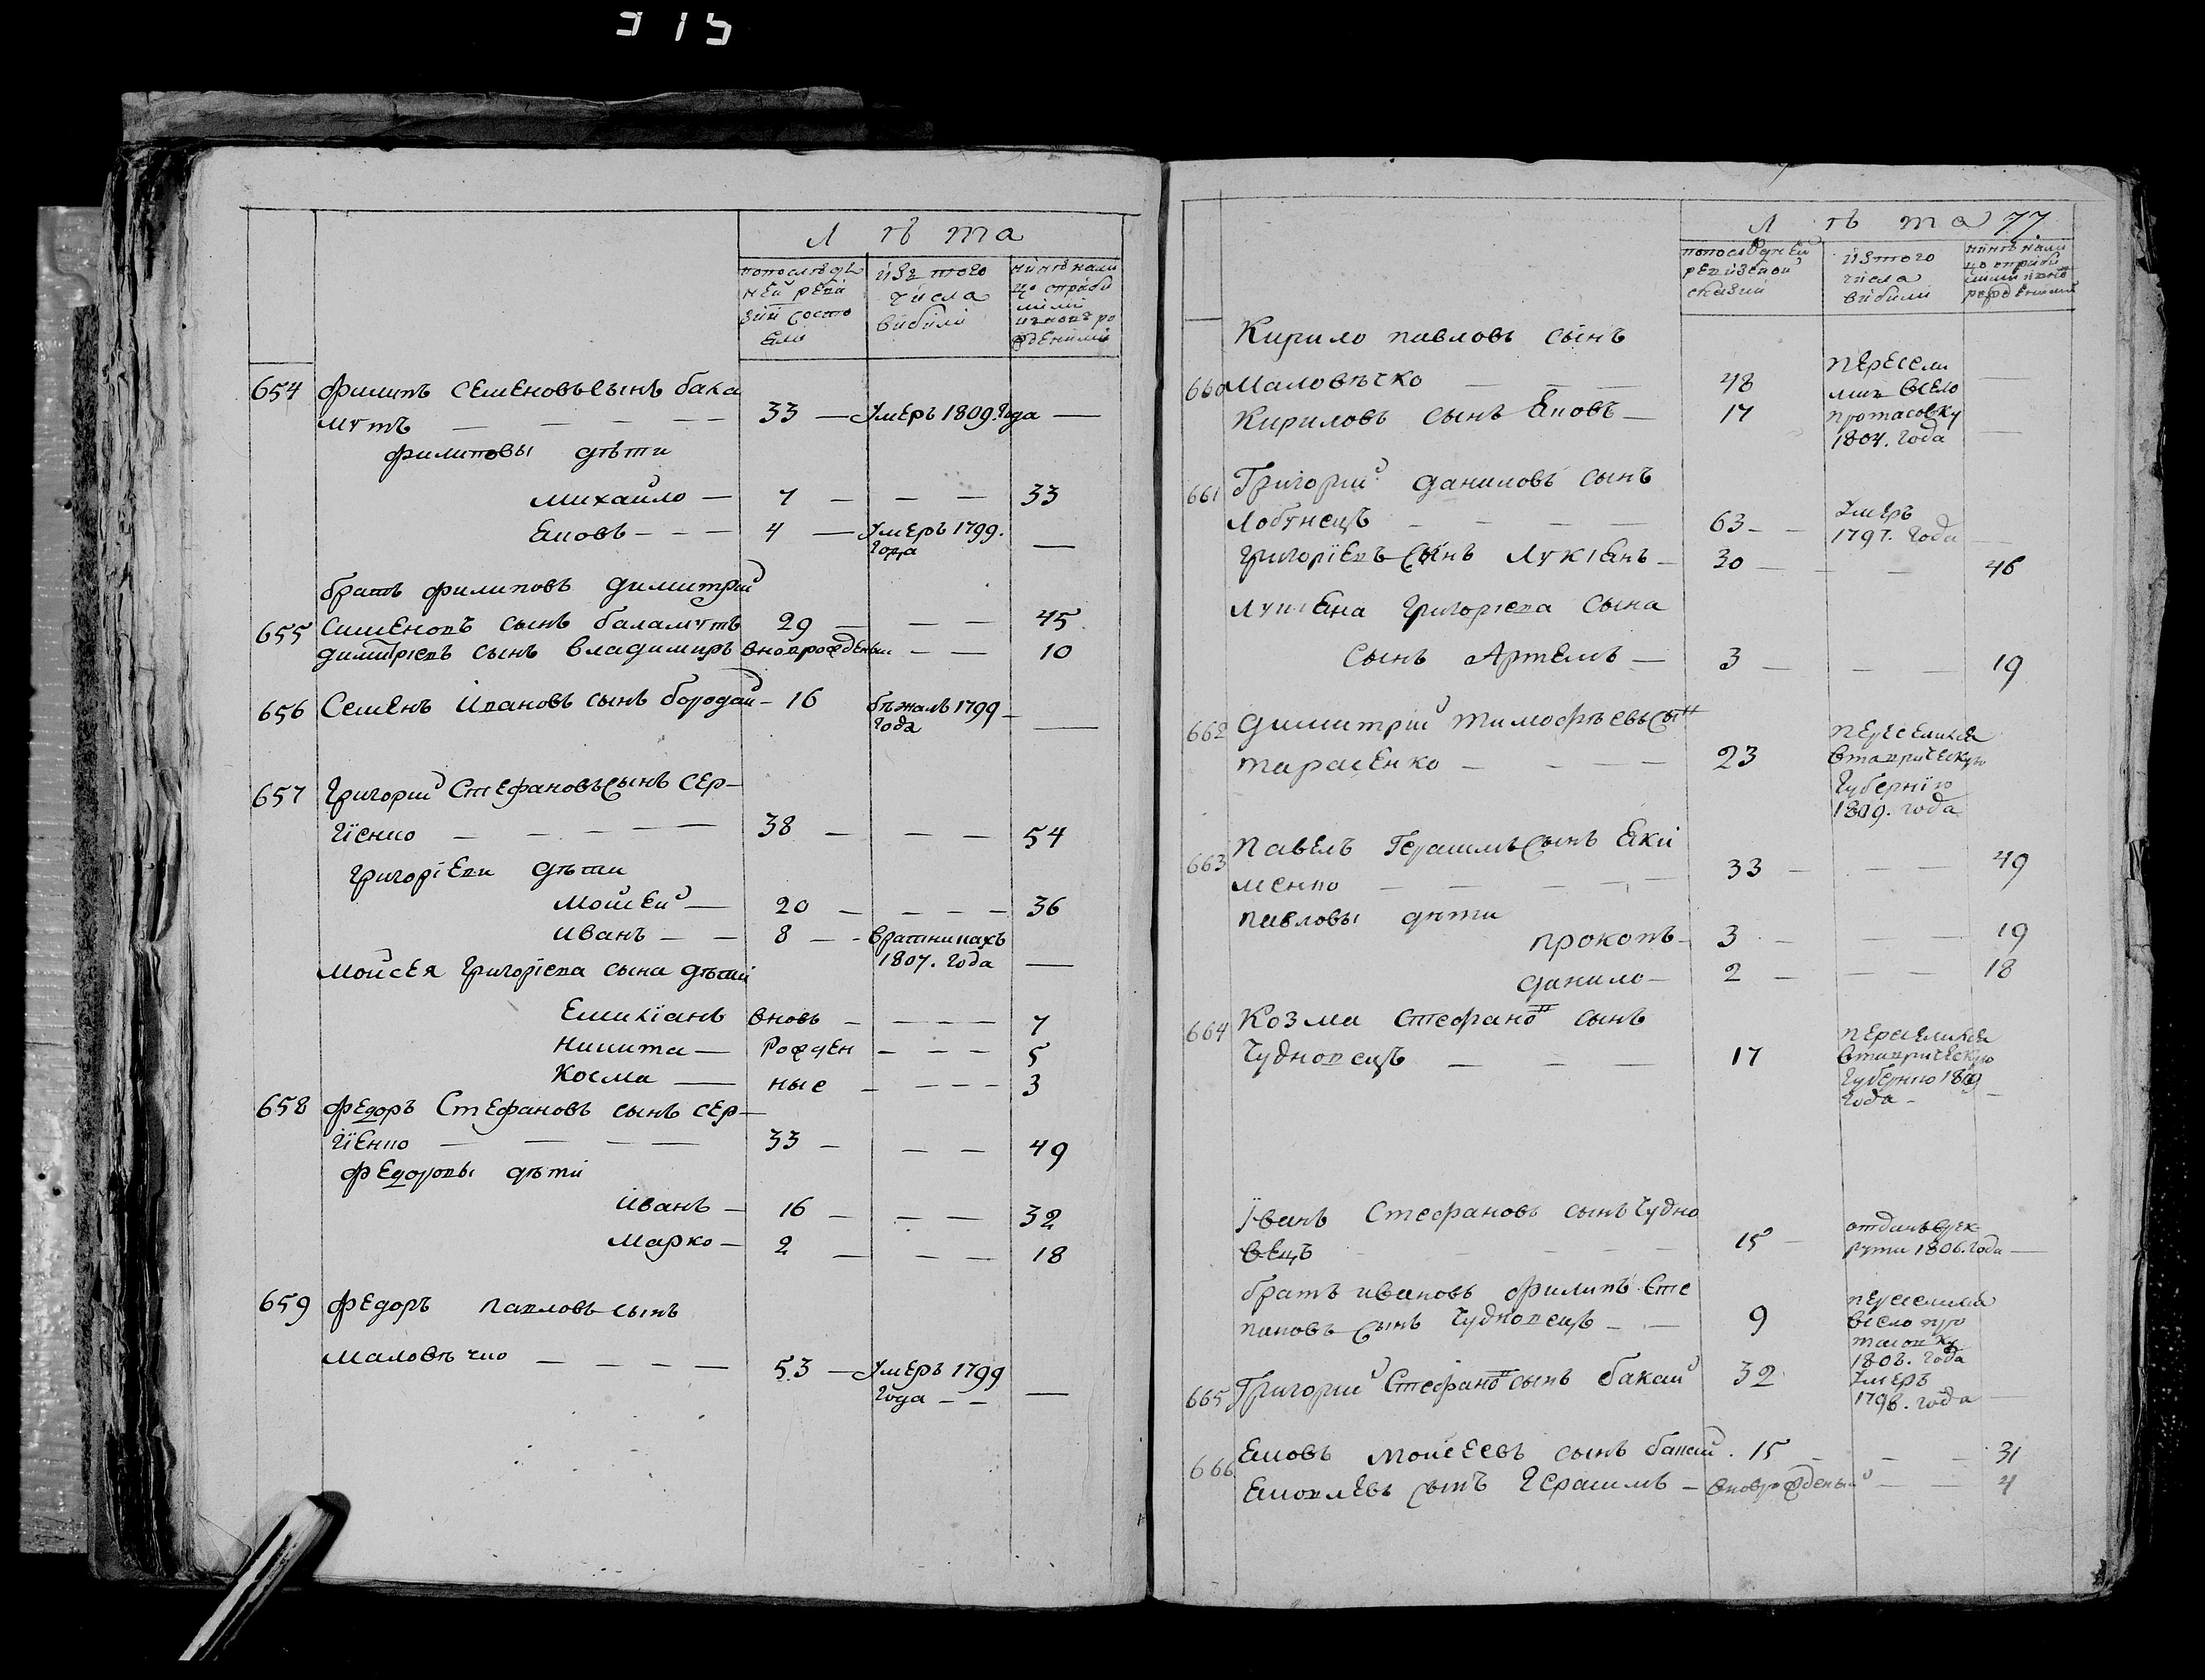 315
Лѣта
попослѣдъ ней реви зій состо яло
изъ того числа выбыли
654 Филипъ Семеновъ сынъ бала
мутъ — — — — — 33 — Умеръ 1809. Года —
Филиповы дѣти
Михайло — 7 — — — 33
Яковъ — — — 4 — Умеръ 1799. Года —
братъ Филиповъ Димитрій
655 Семеновъ сынъ баламутъ 29 — — — 45
Димитріевъ сынъ Владимиръ вновърожденый — — 10
656 Семенъ Ивановъ сынъ бородай — 16 бѣжалъ 1799 Года —
657 Григорий Стефановъ сынъ Сер—
гїенко — — — — — 38 — — — 54
Григоріеви дѣти
Мойсей — 20 — — — — 36
Иванъ — — 8 — — Вратникахъ 1807. Года —
Мойсея Григоріева сына дѣти
Емиліанъ вновь — — — — 7
Никита — рожден — — — 5
Косма — ные — — — — 3
658 Федоръ Стефановъ сынъ Сер—
гїенко — — — — 33 — — — 49
Федоровы дѣти
Иванъ — 16 — — — 32
Марко — 2 — — — 18
659 Федоръ Павловъ сынъ
Маловѣчко — — — — 53 — Умеръ 1799 Года — — —
Лѣта 77
попослѣдней ревизской сказки
изтого числа выбыли
Кирило павловъ сынъ
660 Маловѣчко — — — 48 пересели лись всело
Кириловъ сынъ Яковъ — 17 протасовку 1804. Года —
661 Григорий Даниловъ сынъ
Лобунецъ — — — — 63 — — Умеръ 1797. Года —
Григоріевъ сынъ Лукіянъ — 30 — — — 46
Лукіяна Григоріева сына
сынъ Артемъ — 3 — — — 19
662 Димитрій Тимофѣевъ сынъ
Тарасенко — — — — 23 переселился втаврическую Губернїю 1809. года
663 Павелъ Герасимъ сынъ Яки
менко — — — — — 33 — — — 49
Павловы дѣти
Прокопъ — 3 — — — 19
Данило — 2 — — — 18
664 Козма Стефановъ сынъ
Чудновецъ — — — 17 переселился втаврическую Губернїю 1809 Года — —
Їванъ Стефановъ сынъ Чудно
вецъ — — — — 15 — отданъ врек рути 1806. Года —
братъ ивановъ Филипъ Сте
пановъ сынъ Чудновецъ — — 9 переселился всело про тасовку 1808. Года
665 Григорий Стефановъ сынъ бакай 32 Умеръ 1796. Года —
666 Яковъ Мойсеевъ сынъ бакай. 15 — — — 31
Яковлевъ сынъ Герасимъ — вновърожденый — — 4